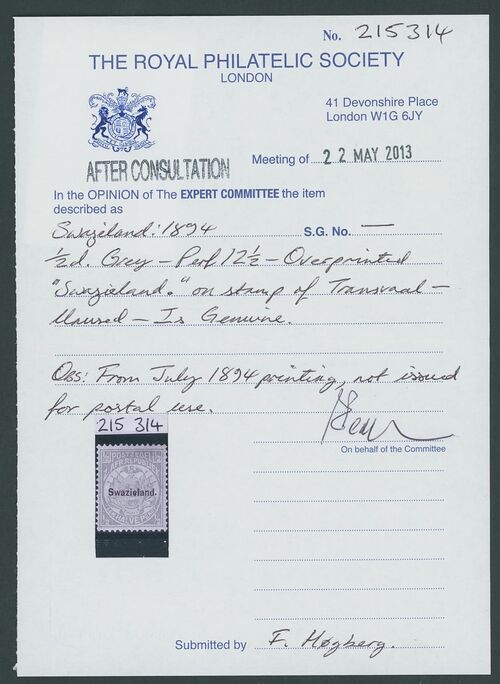 No. 215314
THE ROYAL PHILATELIC SOCIETY
LONDON
41 Devonshire Place
London W1G 6JY
AFTER CONSULTATION
Meeting of 22 MAY 2013
In the OPINION of The EXPERT COMMITTEE the item
described as
Swazieland: 1894 S.G. No. —
½d. Grey – Perf 12½ – Overprinted
"Swazieland." on stamp of Transvaal –
Unused – Is Genuine.
Obs: From July 1894 printing, not issued
for postal use.
On behalf of the Committee
215 314
POSTZEGEL
Swazieland.
HALVE PENNY
Submitted by F. Høgberg.